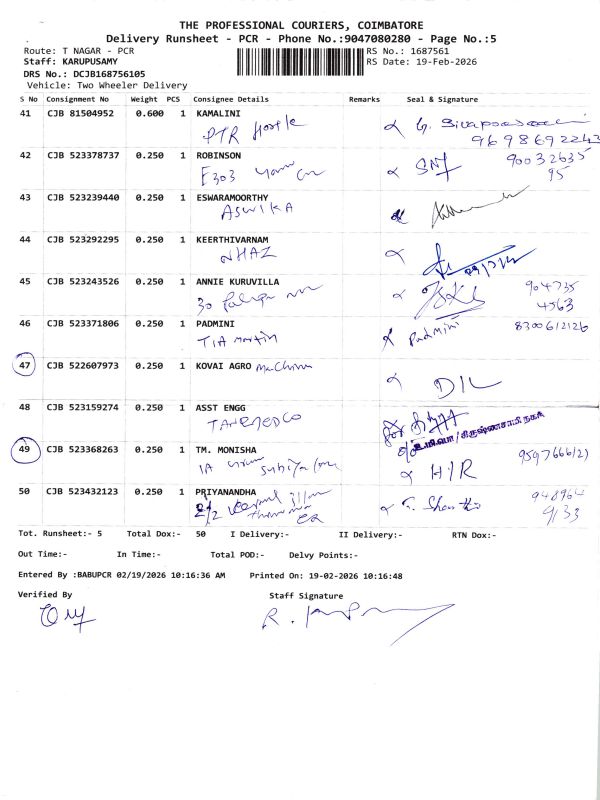 THE PROFESSIONAL COURIERS, COIMBATORE
Delivery Runsheet - PCR - Phone No.:9047080280 - Page No.:5
Route: T NAGAR - PCR RS No.: 1687561
Staff: KARUPUSAMY RS Date: 19-Feb-2026
DRS No.: DCJB168756105
Vehicle: Two Wheeler Delivery
S No Consignment No Weight PCS Consignee Details Remarks Seal & Signature
41 CJB 81504952 0.600 1 KAMALINI
PTR
9698692243
42 CJB 523378737 0.250 1 ROBINSON
E303
SNJ 90032635
95
43 CJB 523239440 0.250 1 ESWARAMOORTHY
ASWIKA
44 CJB 523292295 0.250 1 KEERTHIVARNAM
NHAZ
45 CJB 523243526 0.250 1 ANNIE KURUVILLA
30
904735
4563
46 CJB 523371806 0.250 1 PADMINI
TIA Martin
Padmini 8300612126
47 CJB 522607973 0.250 1 KOVAI AGRO Machine
D/L
48 CJB 523159274 0.250 1 ASST ENGG
TANGEDCO
49 CJB 523368263 0.250 1 TM. MONISHA
1A
H/R
50 CJB 523432123 0.250 1 PRIYANANDHA
2/2
948964
9133
Tot. Runsheet:- 5 Total Dox:- 50 I Delivery:- II Delivery:- RTN Dox:-
Out Time:- In Time:- Total POD:- Delvy Points:-
Entered By :BABUPCR 02/19/2026 10:16:36 AM Printed On: 19-02-2026 10:16:48
Verified By Staff Signature